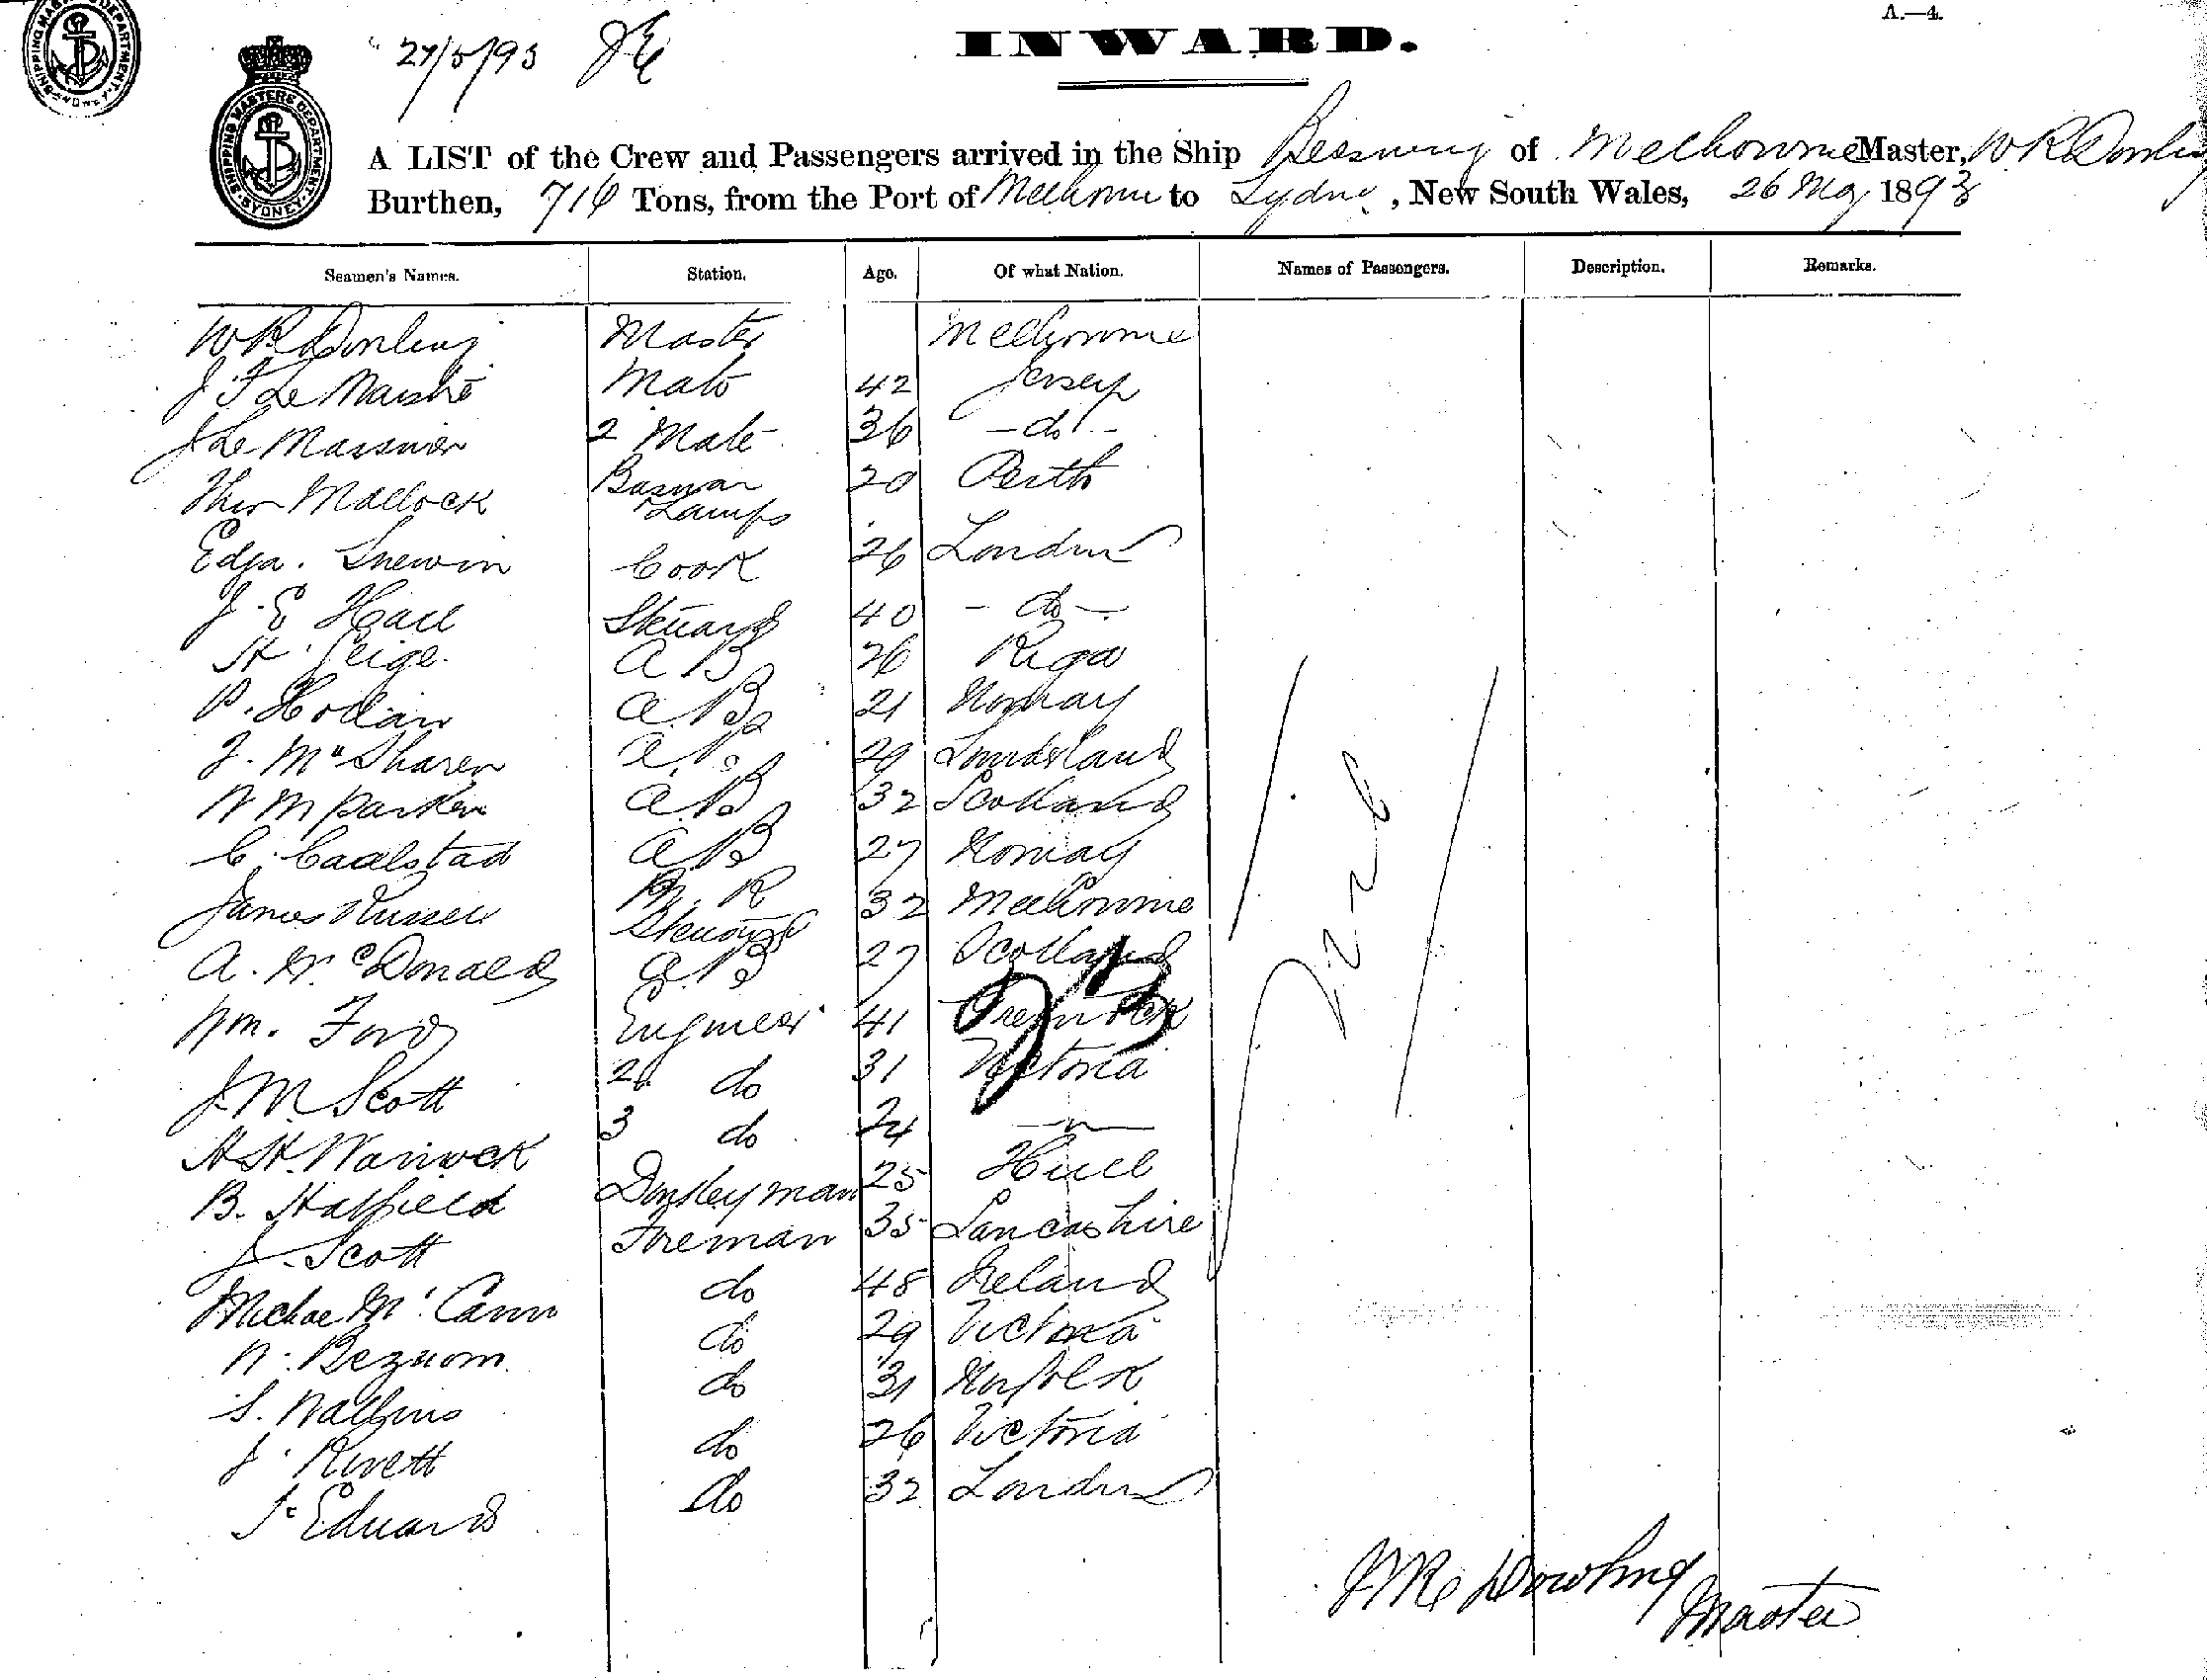 A.—4.
27/5/93
INWARD.
SHIPPING MASTERS DEPARTMENT SYDNEY
A LIST of the Crew and Passengers arrived in the Ship of Melbourne Master, W R Dowling
Burthen, 716 Tons, from the Port of Melbourne to Sydney, New South Wales, 26 May 1893
Seamen's Names. Station. Age. Of what Nation. Names of Passengers. Description. Remarks.
W R Dowling Master Melbourne
J F Le Maistre Mate 42 Jersey
J Le Massurier 2 Mate 36 - do -
Mallock Bosman 20 Perth
Lamps
Edga. Snewin Cook 26 London
J. E Hall Steward 40 - do -
H. A B 26 Riga
P. A B 21 Norway
J. McSharen A B 29
Wm Parken A B 32 Scotland
C. Caalstad A B 27 Norway
James Russell R 32 Melbourne
Steward
A. McDonald A B 27 Scotland
Wm. Ford Engineer 41
J. M Scott 2d do 31 Victoria
H H. Warwick 3 do 24
B. Hatfield Donkeyman 25 Hull
J. Scott Fireman 35 Lancashire
Michae McCann do 48 Ireland
do 29 Victoria
S. do 31 Norfolk
J. Rivett do 26 Victoria
Edwards do 32 London
W R Dowling
Master